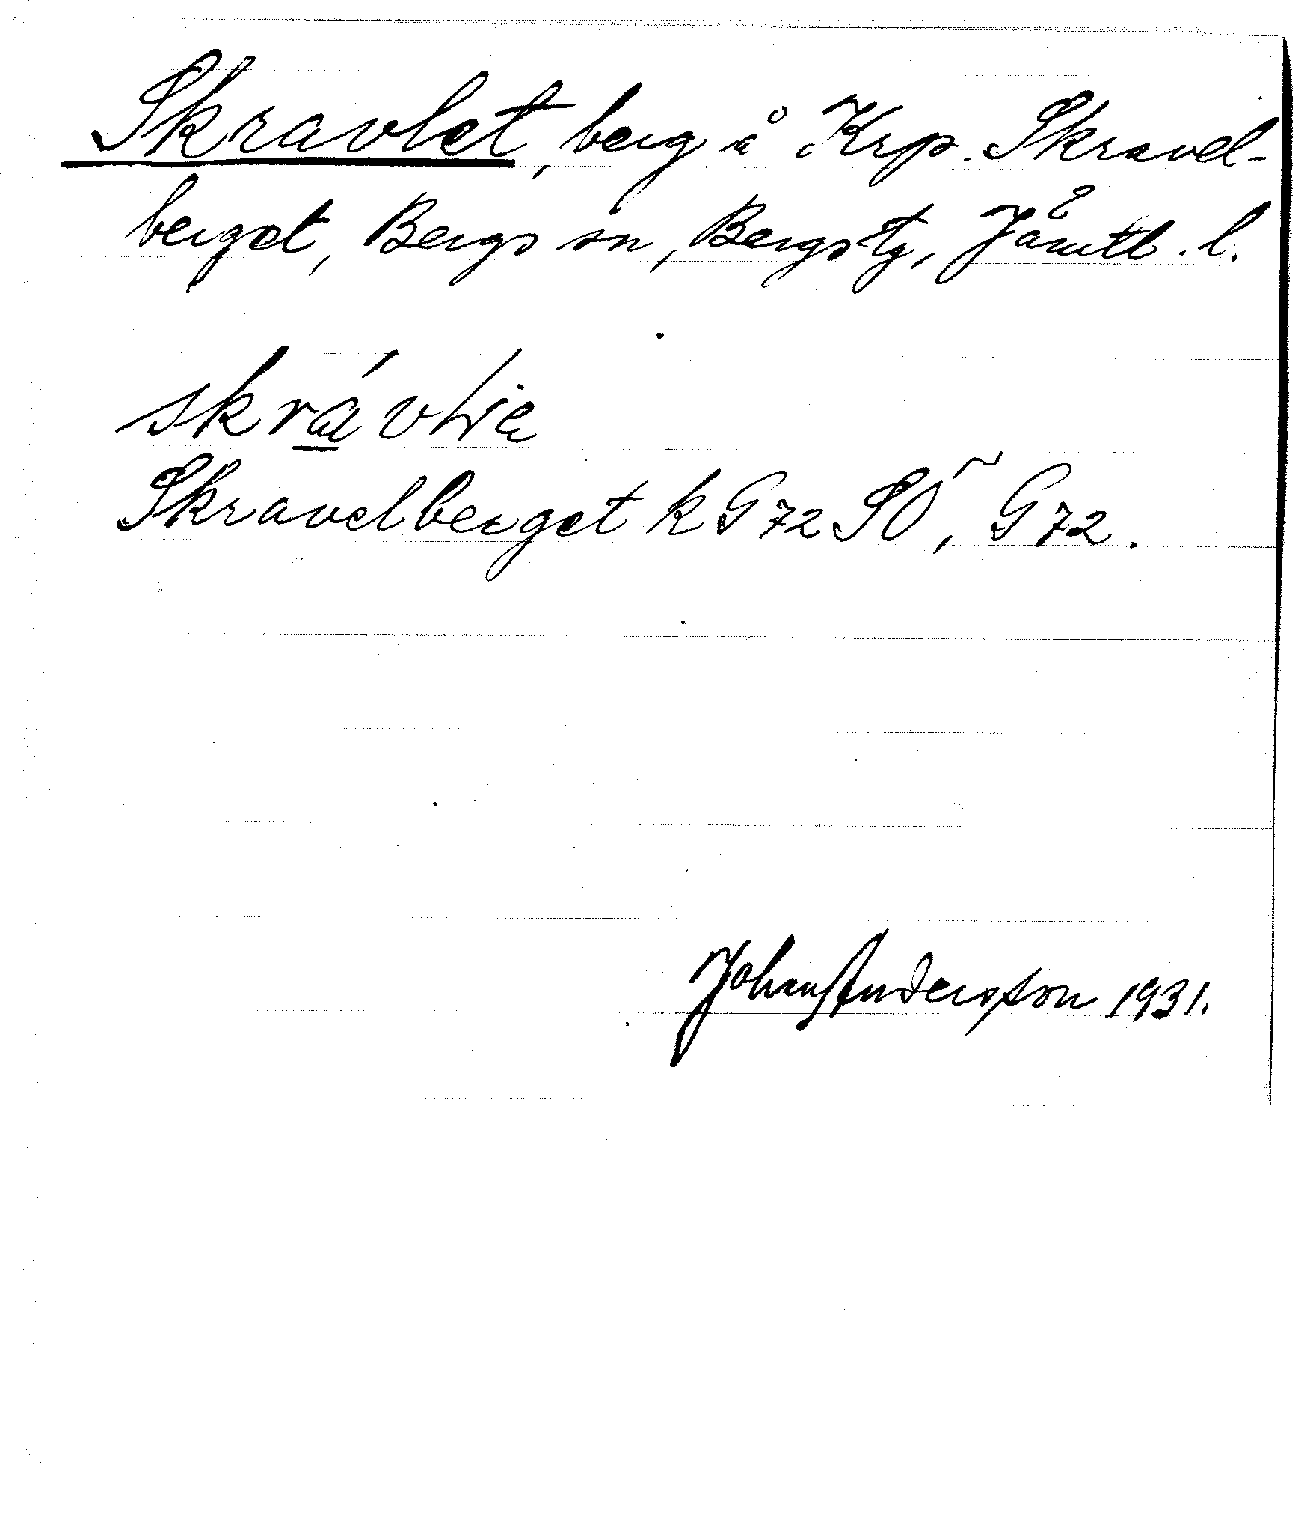 Skravlet, berg å Krp. Skravel-
berget, Bergs sn, Bergs tg, Jämtl. l.
Skravelberget k G 72 SÖ, G 72.
Johan Anderson 1931.